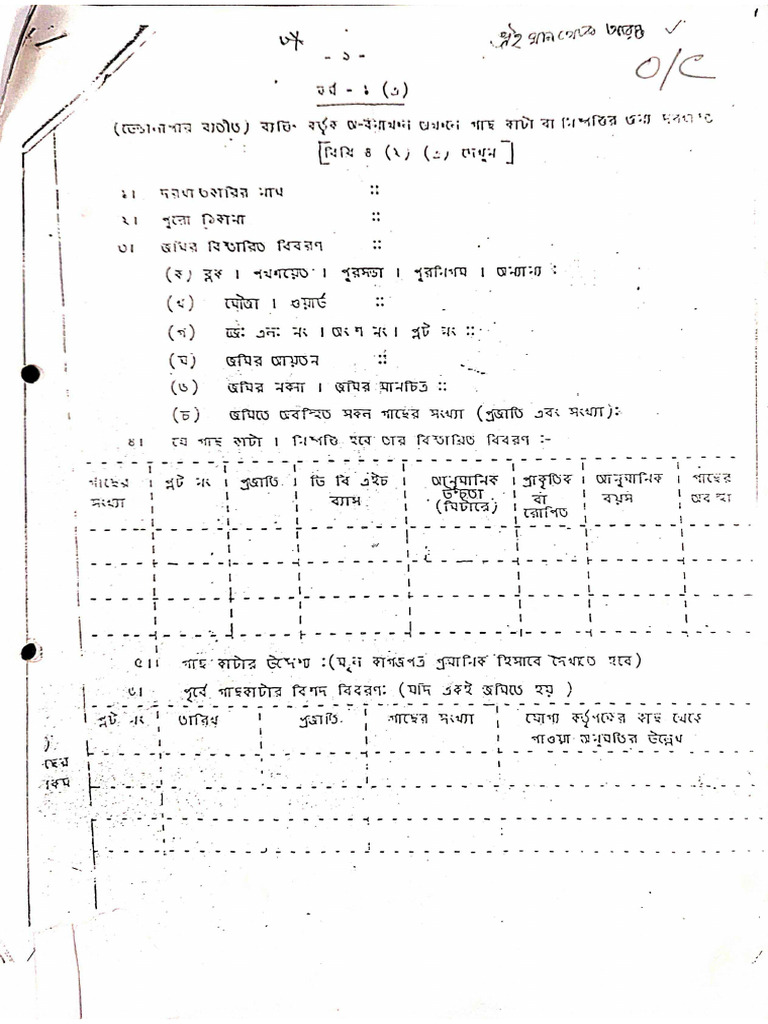 এই খান থেকে আরম্ভ
O/C
- ১ -
ফর্ম - ১ (এ)
(ডেভালাপার ব্যতীত) ব্যক্তি কর্তৃক অ-বনাঞ্চল এখানে গাছ কাটা বা নিষ্পত্তির জন্য দরখাস্ত
[বিধি ৪ (২) (এ) দেখুন]
১। দরখাস্তকারির নাম ::
২। পুরো ঠিকানা ::
৩। জমির বিস্তারিত বিবরণ ::
(ক) ব্লক । পঞ্চায়েত । পুরসভা । পুরনিগম । অন্যান্য :
(খ) মৌজা । ওয়ার্ড ::
(গ) জে: এল: নং । অংশ নং । প্লট নং ::
(ঘ) জমির আয়তন ::
(ঙ) জমির নকসা । জমির মানচিত্র ::
(চ) জমিতে অবস্থিত সকল গাছের সংখ্যা (প্রজাতি এবং সংখ্যা):
৪। যে গাছ কাটা । নিষ্পত্তি হবে তার বিস্তারিত বিবরণ :-
গাছের প্লট নং প্রজাতি ডি বি এইচ আনুমানিক প্রাকৃতিক আনুমানিক গাছের
সংখ্যা ব্যাস উচ্চতা বা বয়স অবস্থা
(মিটারে) রোপিত
৫। গাছ কাটার উদ্দেশ্য :(মূল কাগজপত্র প্রমানিক হিসাবে দেখাতে হবে)
৬। পূর্বে গাছকাটার বিশদ বিবরণ: (যদি একই জমিতে হয় )
প্লট নং তারিখ প্রজাতি গাছের সংখ্যা যোগ্য কর্তৃপক্ষের কাছ থেকে
পাওয়া অনুমতির উল্লেখ